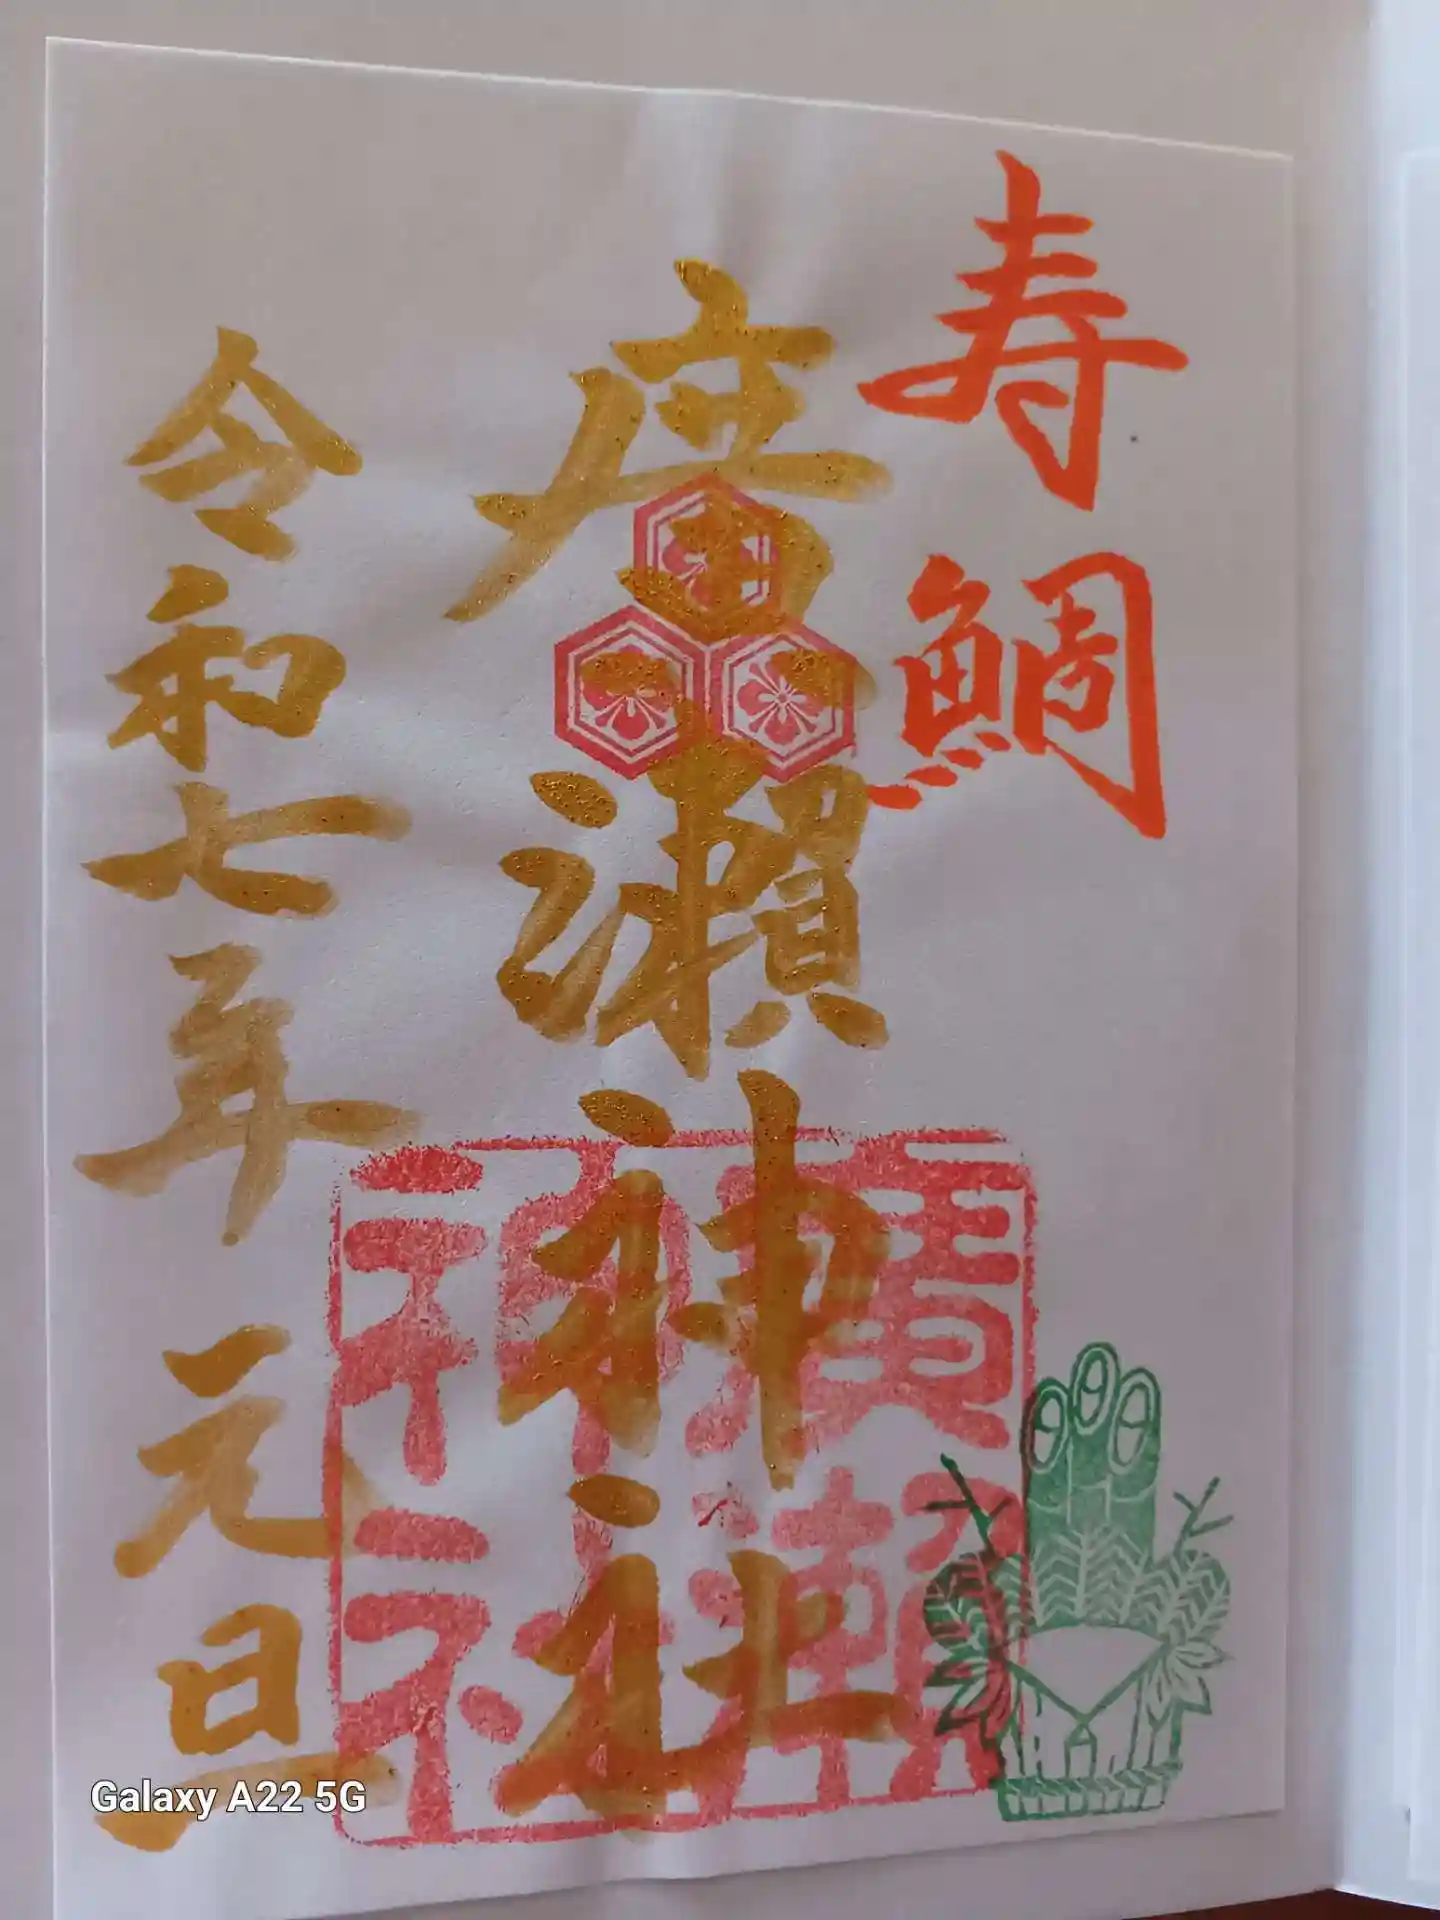 寿鯛
廣瀬神社
廣瀬神社
令和七年 元旦
Galaxy A22 5G